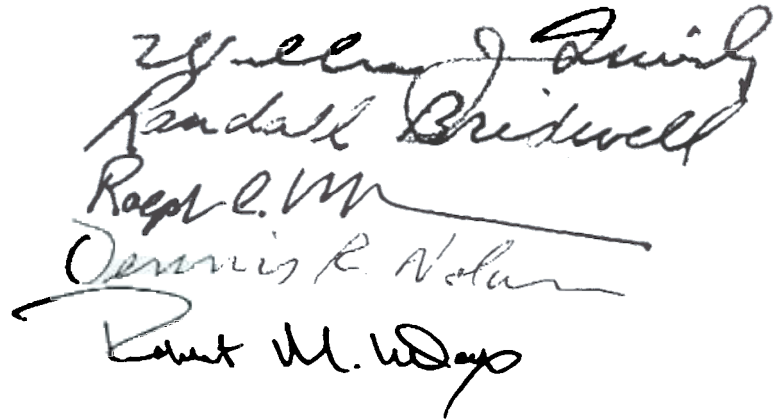 William J. Quirk
Randall Bridwell
Ralph C.
Dennis R. Nolan
Robert M.